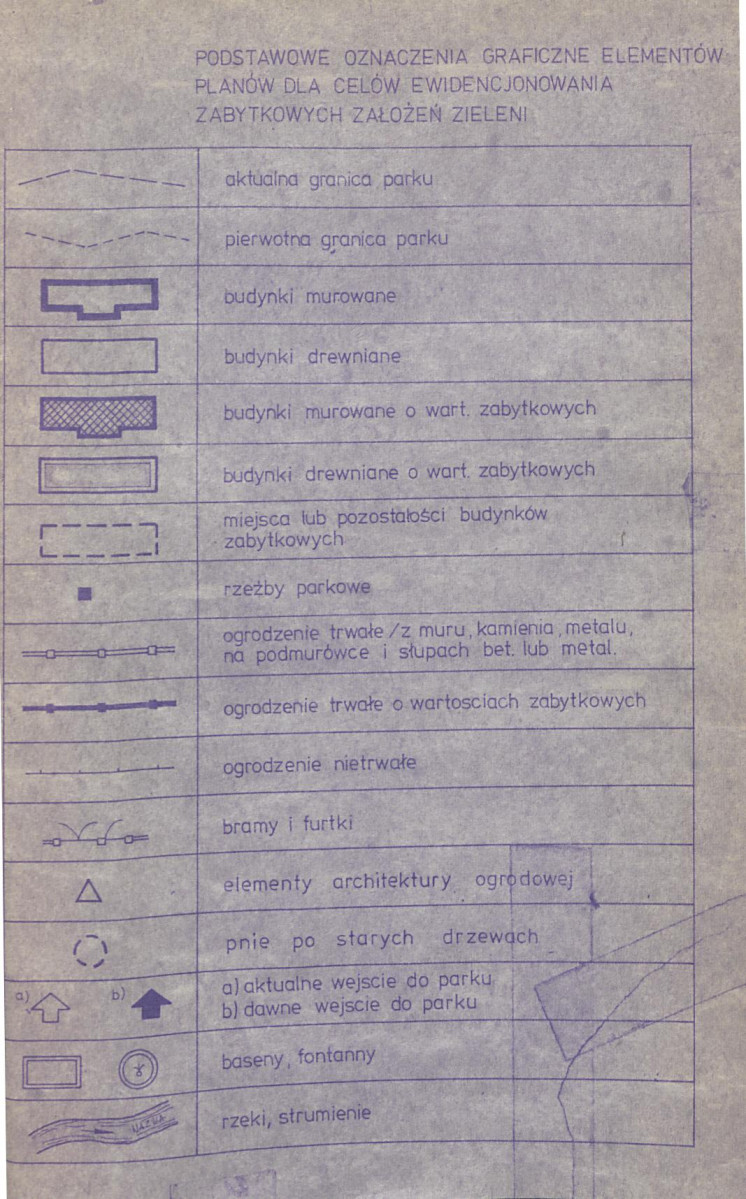 PODSTAWOWE OZNACZENIA GRAFICZNE ELEMENTÓW
PLANÓW DLA CELÓW EWIDENCJONOWANIA
ZABYTKOWYCH ZAŁOŻEŃ ZIELENI
aktualna granica parku
pierwotna granica parku
budynki murowane
budynki drewniane
budynki murowane o wart. zabytkowych
budynki drewniane o wart. zabytkowych
miejsca lub pozostałości budynków
zabytkowych
rzeźby parkowe
ogrodzenie trwałe /z muru, kamienia, metalu,
na podmurówce i słupach bet. lub metal.
ogrodzenie trwałe o wartosciach zabytkowych
ogrodzenie nietrwałe
bramy i furtki
elementy architektury ogrodowej
pnie po starych drzewach
a) b) a) aktualne wejscie do parku
b) dawne wejscie do parku
baseny, fontanny
rzeki, strumienie